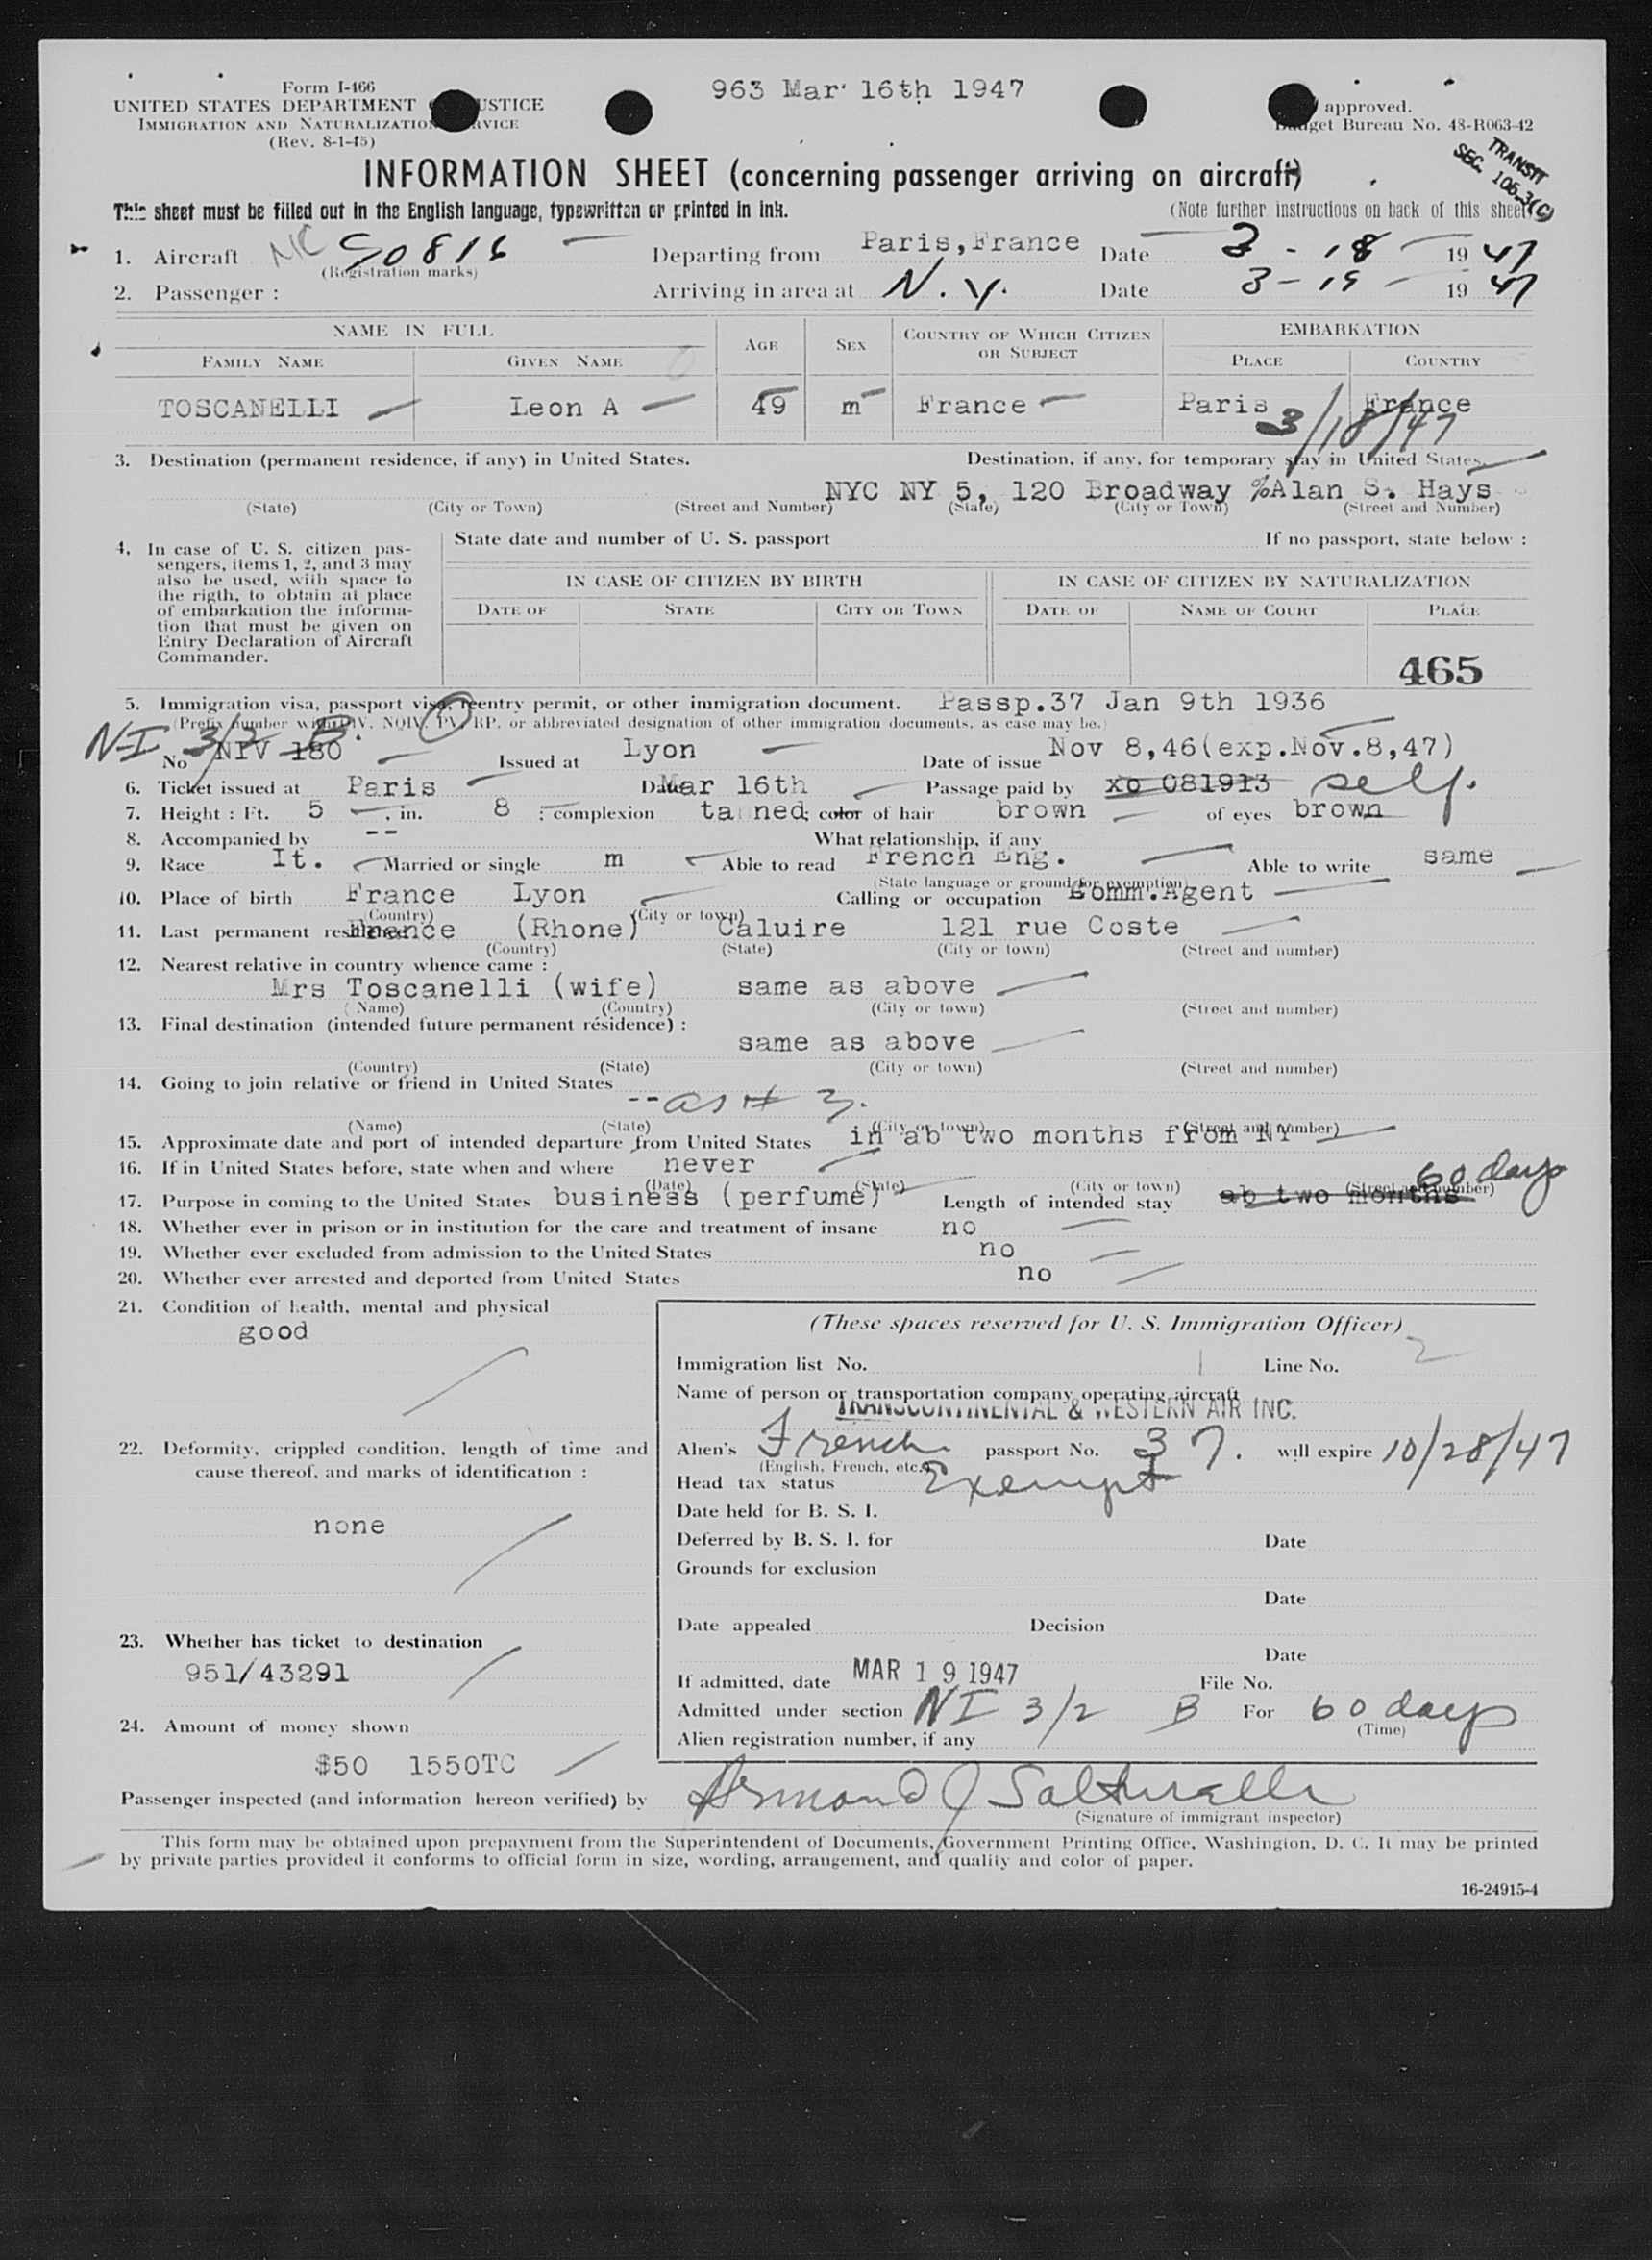 963 Mar 16th 1947
Form I-466
UNITED STATES DEPARTMENT JUSTICE
IMMIGRATION AND NATURALIZATION SERVICE
(Rev. 8-1-45)
approved.
Budget Bureau No. 48-R063-42
TRANSIT
SEC. 105.3(C)
INFORMATION SHEET (concerning passenger arriving on aircraft)
This sheet must be filled out in the English language, typewritten or printed in ink. (Note further instructions on back of this sheet)
1. Aircraft NC 90816 Departing from Paris, France Date 3-18 1947
(Registration marks)
2. Passenger : Arriving in area at N.Y. Date 3-19 1947
NAME IN FULL AGE SEX COUNTRY OF WHICH CITIZEN OR SUBJECT EMBARKATION
FAMILY NAME GIVEN NAME PLACE COUNTRY
TOSCANELLI Leon A 49 m France Paris France
3/18/47
3. Destination (permanent residence, if any) in United States. Destination, if any, for temporary stay in United States.
NYC NY 5, 120 Broadway %Alan S. Hays
(State) (City or Town) (Street and Number) (State) (City or Town) (Street and Number)
4. In case of U. S. citizen pas-
sengers, items 1, 2, and 3 may
also be used, with space to
the rigth, to obtain at place
of embarkation the informa-
tion that must be given on
Entry Declaration of Aircraft
Commander.
State date and number of U. S. passport If no passport, state below :
IN CASE OF CITIZEN BY BIRTH IN CASE OF CITIZEN BY NATURALIZATION
DATE OF STATE CITY OR TOWN DATE OF NAME OF COURT PLACE
465
5. Immigration visa, passport visa, reentry permit, or other immigration document. Passp.37 Jan 9th 1936
(Prefix number with IV, NQIV, PV, RP, or abbreviated designation of other immigration documents, as case may be.)
NI 3/2 B.
No NIV 180 Issued at Lyon Date of issue Nov 8,46(exp.Nov.8,47)
6. Ticket issued at Paris Date Mar 16th Passage paid by xo 081913 self.
7. Height : Ft. 5 , in. 8 ; complexion tanned; color of hair brown of eyes brown
8. Accompanied by -- What relationship, if any.
9. Race It. Married or single m Able to read French Eng. Able to write same
(State language or ground for exemption)
10. Place of birth France Lyon Calling or occupation Comm.Agent
(Country) (City or town)
11. Last permanent residence France (Rhone) Caluire 121 rue Coste
(Country) (State) (City or town) (Street and number)
12. Nearest relative in country whence came :
Mrs Toscanelli (wife) same as above
(Name) (Country) (City or town) (Street and number)
13. Final destination (intended future permanent résidence) :
same as above
(Country) (State) (City or town) (Street and number)
14. Going to join relative or friend in United States
-- as # 3.
(Name) (State) (City or town) (Street and number)
15. Approximate date and port of intended departure from United States in ab two months from NY
16. If in United States before, state when and where never
(Date) (State) (City or town) (Street and number)
17. Purpose in coming to the United States business (perfume) Length of intended stay ab two months 60 days
18. Whether ever in prison or in institution for the care and treatment of insane no
19. Whether ever excluded from admission to the United States no
20. Whether ever arrested and deported from United States no
21. Condition of health, mental and physical
good
22. Deformity, crippled condition, length of time and
cause thereof, and marks of identification :
none
23. Whether has ticket to destination
951/43291
24. Amount of money shown
$50 1550TC
(These spaces reserved for U. S. Immigration Officer)
Immigration list No. 1 Line No. 2
Name of person or transportation company operating aircraft
TRANSCONTINENTAL & WESTERN AIR INC.
Alien's French passport No. 37. will expire 10/28/47
(English, French, etc.)
Head tax status Exempt
Date held for B. S. I.
Deferred by B. S. I. for Date
Grounds for exclusion
Date
Date appealed Decision
Date
If admitted, date MAR 19 1947 File No.
Admitted under section NI 3/2 B For 60 days
(Time)
Alien registration number, if any
Passenger inspected (and information hereon verified) by Armond J Salturelli
(Signature of immigrant inspector)
This form may be obtained upon prepayment from the Superintendent of Documents, Government Printing Office, Washington, D. C. It may be printed
by private parties provided it conforms to official form in size, wording, arrangement, and quality and color of paper.
16-24915-4